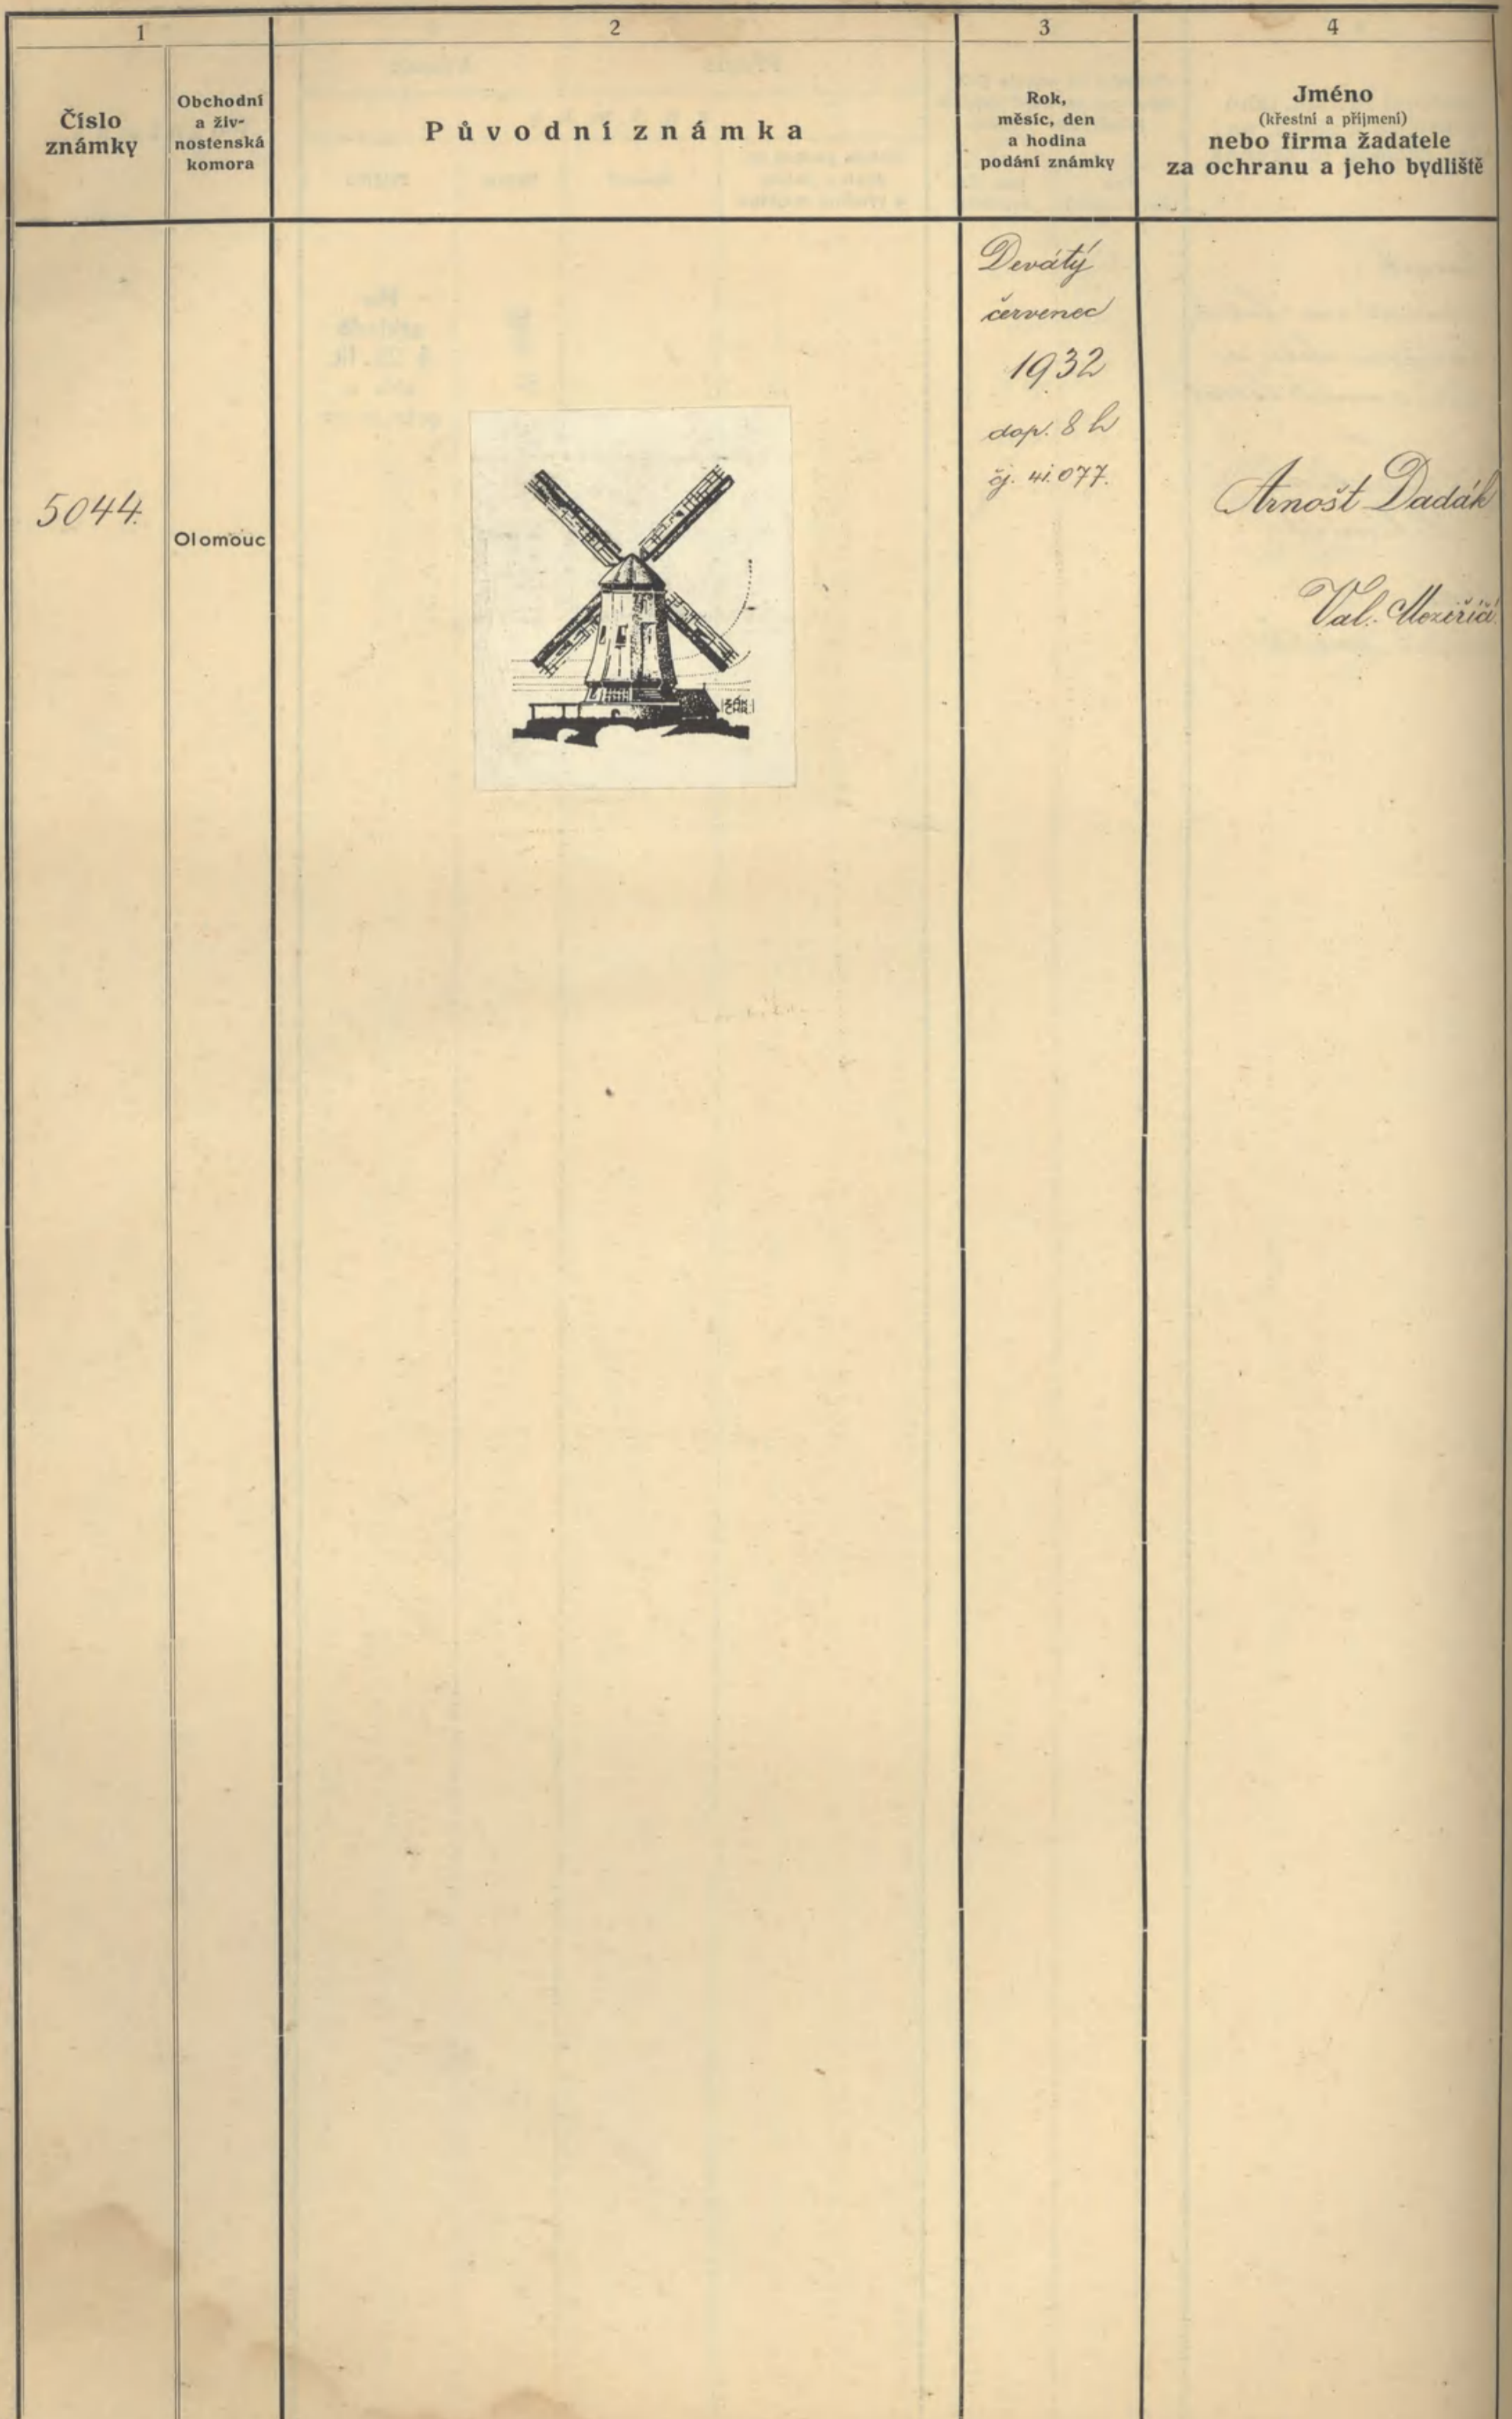 1
2
3
4
Číslo
známky
Obchodní
a živ-
nostenská
komora
Původní známka
Rok,
měsíc, den
a hodina
podání známky
Jméno
(křestní a příjmení)
nebo firma žadatele
za ochranu a jeho bydliště
5044.
Olomouc
Devátý
červenec
1932
dop. 8 h
čj. 41.077.
Arnošt Dadák
Val. Meziříčí